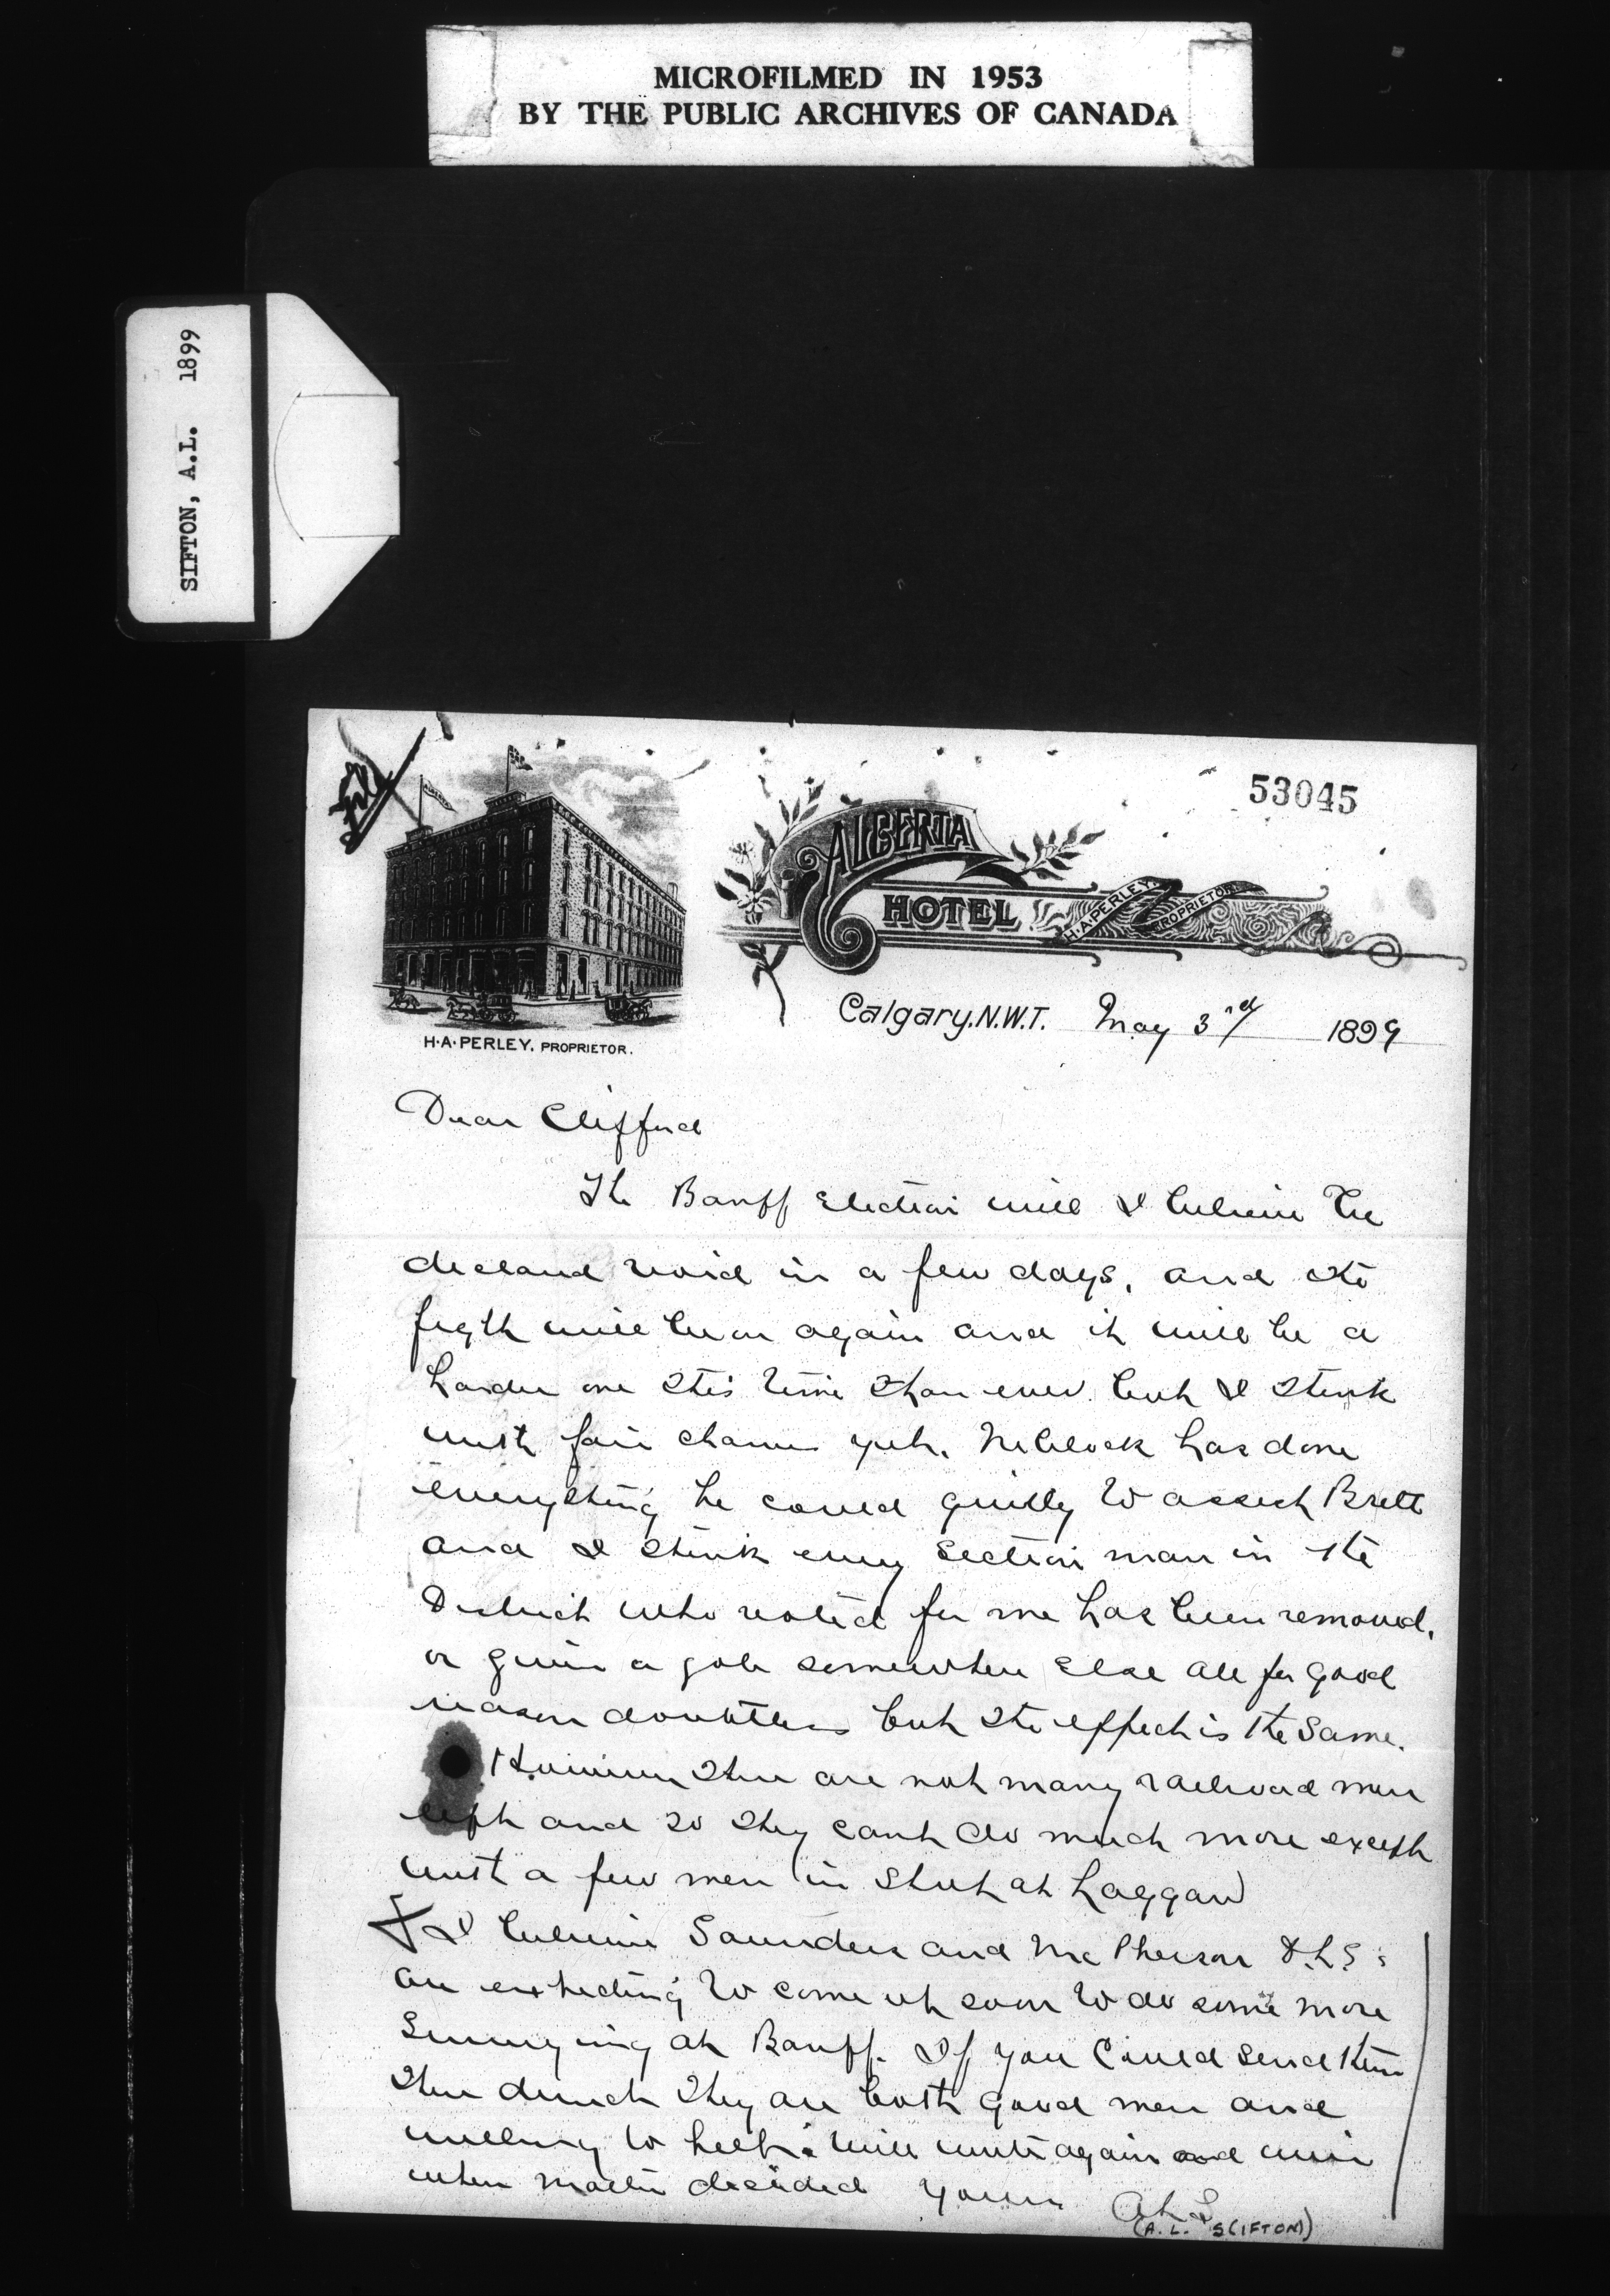 MICROFILMED IN 1953
BY THE PUBLIC ARCHIVES OF CANADA
SIFTON, A.L. 1899
53045
ALBERTA
HOTEL
H.A.PERLEY. PROPRIETOR
H.A.PERLEY. PROPRIETOR.
Calgary, N.W.T. May 3rd 1899
Dear Clifford
The Banff Election will I believe be
declared void in a few days, and the
figth will be on again and it will be a
harder one this time than ever but I think
with fair chances yet. Niblock has done
everything he could quietly to assist Brett
and I think every Section man in the
District who voted for me has been removed,
or given a job somewhere Else all for good
reason doubtless but the effect is the same.
However there are not many railroad men
left and so they cant do much more except
with a few men in Shut at Laggan
X I believe Saunders and McPherson D.L.S.s
are expecting to come up soon to do some more
Surveying at Banff. If you could send them
there direct they are both good men and
willing to help. Will write again and wire
when matter decided Yours ALS
(A. L. S(IFTON))